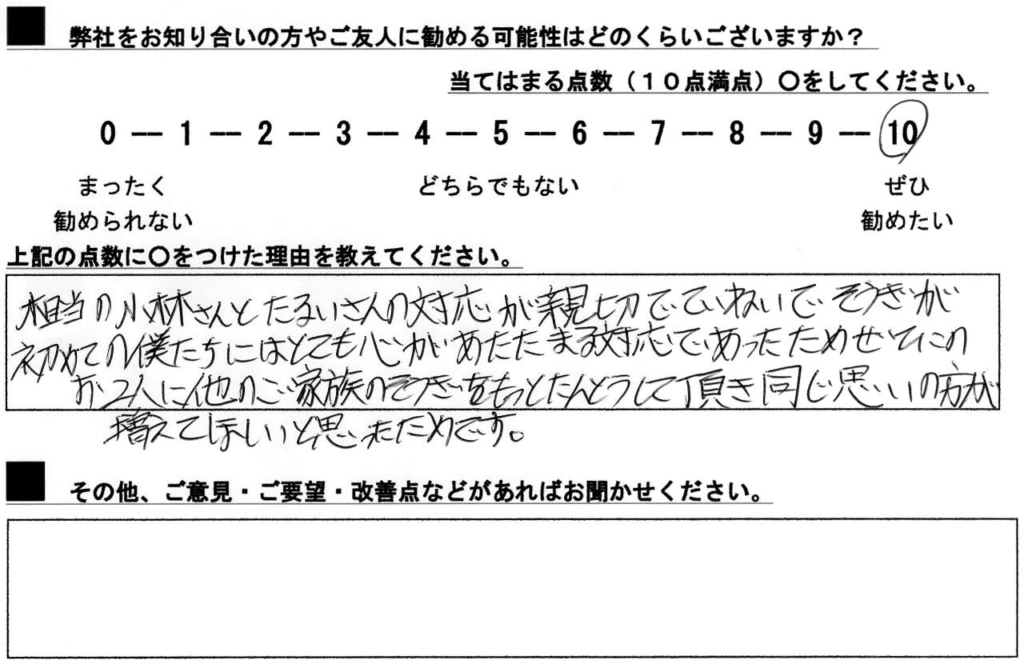 弊社をお知り合いの方やご友人に勧める可能性はどのくらいございますか?
当てはまる点数（１０点満点）〇をしてください。
0 -- 1 -- 2 -- 3 -- 4 -- 5 -- 6 -- 7 -- 8 -- 9 -- 10
まったく どちらでもない ぜひ
勧められない 勧めたい
上記の点数に〇をつけた理由を教えてください。
相当の小林さんとたるいさんの対応が親切でていねいでそうぎが
初めての僕たちにはとても心があたたまる対応であったためぜひこの
お2人に他のご家族のそうぎをもっとたんとうして頂き同じ思いの方が
増えてほしいと思ったためです。
その他、ご意見・ご要望・改善点などがあればお聞かせください。